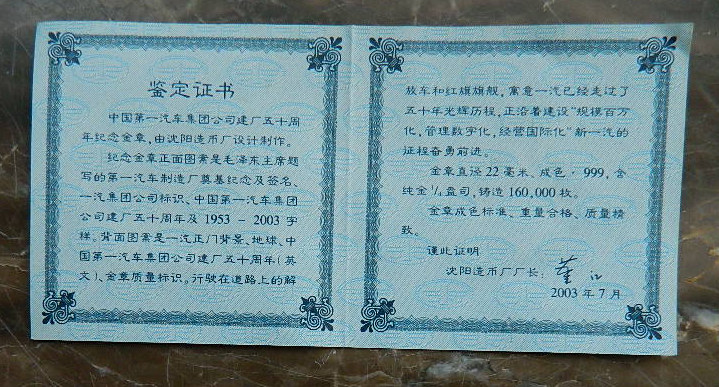 鉴定证书
中国第一汽车集团公司建厂五十周
年纪念金章,由沈阳造币厂设计制作。
纪念金章正面图案是毛泽东主席题
写的第一汽车制造厂奠基纪念及签名、
一汽集团公司标识、中国第一汽车集团
公司建厂五十周年及1953－2003字
样。背面图案是一汽正门背景、地球、中
国第一汽车集团公司建厂五十周年(英
文)、金章质量标识。行驶在道路上的解
放车和红旗旗舰,寓意一汽已经走过了
五十年光辉历程,正沿着建设"规模百万
化,管理数字化,经营国际化"新一汽的
征程奋勇前进。
金章直径22毫米、成色·999,含
纯金1/4盎司,铸造160,000枚。
金章成色标准、重量合格、质量精
致。
谨此证明
沈阳造币厂厂长:
2003年7月